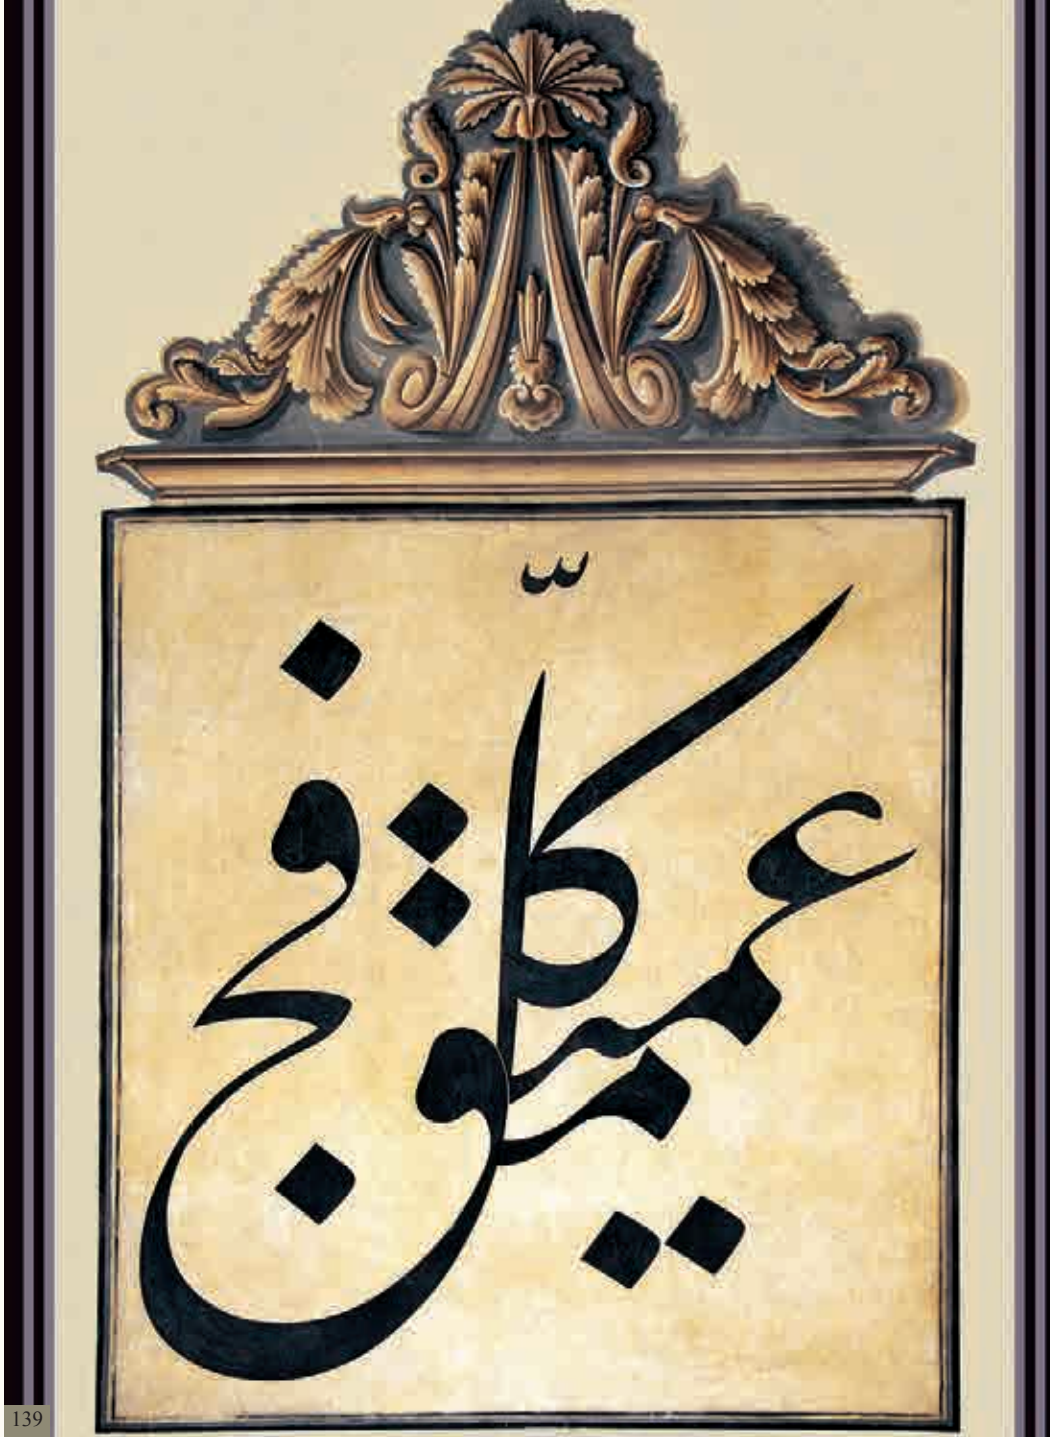 كلّ فج عميق
139